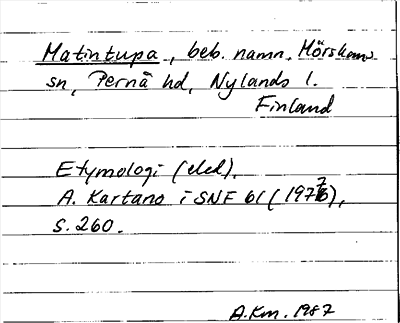 Matintupa, beb. namn. Mörskoms
sn, Pernå hd, Nylands l.
Finland
Etymologi (eled).
A. Kartano i SNF 61 (1977),
s. 260.
A.Km. 1987